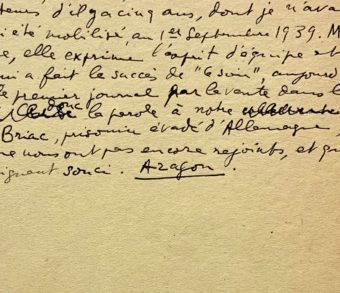 teurs d'il y a cinq ans, dont je n'ava
i été mobilisé au 1er Septembre 1939. M
e, elle exprime l'esprit d'équipe et
ui a fait le succès de "Ce soir", aujourd
le premier journal par la vente dans l
donc la parole à notre
Briac, prisonnier évadé d'Allemagne,
ne nous ont pas encore rejoints, et qu
ignant souci. Aragon.